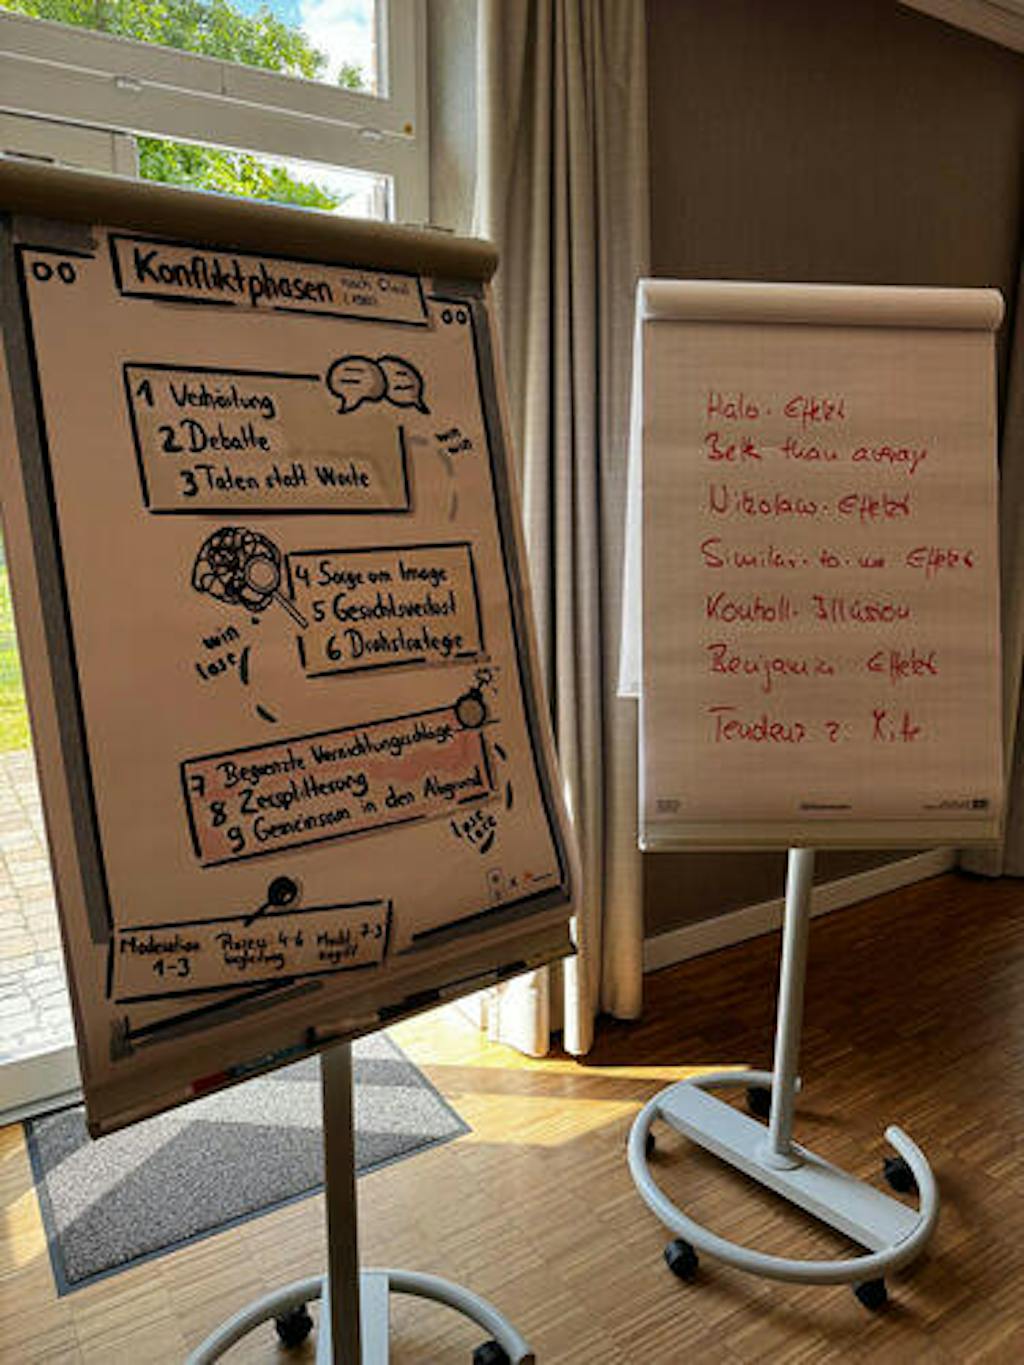 Konfliktphasen nach
1 Verhärtung
2 Debatte
3 Taten statt Worte
win
win
4 Sorge um Image
5 Gesichtsverlust
6 Drohstrategie
win
lose
7 Begrenzte Vernichtungsschläge
8 Zersplitterung
9 Gemeinsam in den Abgrund
lose
lose
Moderation
1-3
Prozess 4-6
begleitung
7-9
Halo-Effekt
Better than average
Nikolaus-Effekt
Similar-to-me Effekt
Kontroll-Illusion
Benjamin Effekt
Tendenz z. Mitte